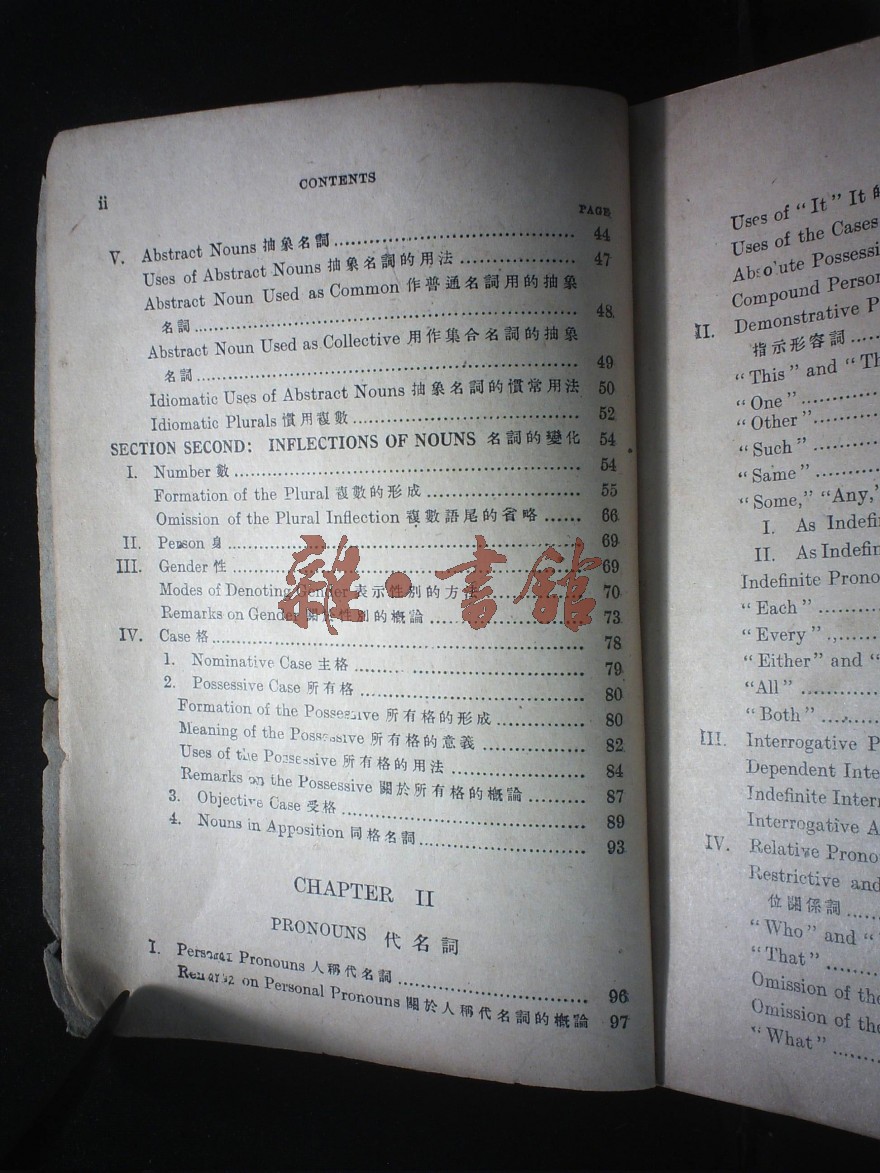 ii
CONTENTS
PAGE
V. Abstract Nouns 抽象名詞 44
Uses of Abstract Nouns 抽象名詞的用法 47
Abstract Noun Used as Common 作普通名詞用的抽象
名詞 48
Abstract Noun Used as Collective 用作集合名詞的抽象
名詞 49
Idiomatic Uses of Abstract Nouns 抽象名詞的慣常用法 50
Idiomatic Plurals 慣用複數 52
SECTION SECOND: INFLECTIONS OF NOUNS 名詞的變化 54
I. Number 數 54
Formation of the Plural 複數的形成 55
Omission of the Plural Inflection 複數語尾的省略 66
II. Person 身 69
III. Gender 性 69
Modes of Denoting Gender 表示性別的方法 70
Remarks on Gender 關於性別的概論 73
IV. Case 格 78
1. Nominative Case 主格 79
2. Possessive Case 所有格 80
Formation of the Possessive 所有格的形成 80
Meaning of the Possessive 所有格的意義 82
Uses of the Possessive 所有格的用法 84
Remarks on the Possessive 關於所有格的概論 87
3. Objective Case 受格 89
4. Nouns in Apposition 同格名詞 93
CHAPTER II
PRONOUNS 代名詞
I. Personal Pronouns 人稱代名詞 96
Remarks on Personal Pronouns 關於人稱代名詞的概論 97
雜·書館
Uses of "It" It 的
Uses of the Cases
Absolute Possessi
Compound Person
II. Demonstrative P
指示形容詞
"This" and "Th
"One"
"Other"
"Such"
"Same"
"Some," "Any,"
I. As Indefi
II. As Indefin
Indefinite Prono
"Each"
"Every"
"Either" and "
"All"
"Both"
III. Interrogative P
Dependent Inte
Indefinite Interr
Interrogative A
IV. Relative Prono
Restrictive and
位關係詞
"Who" and "
"That"
Omission of the
Omission of the
"What"